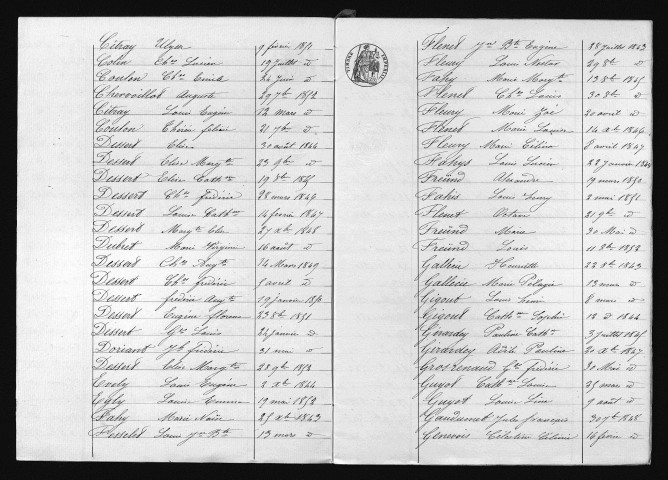 Citray Ulysse 9 février 1851
Colin Ch. Lucien 19 juillet d
Coulon Ch. 24 juin d
Chervoillot Auguste 29 7bre 1852
Citray Louis Eugène 12 mars d
Coulon Chérie Félicie 21 7bre d
Dessert Elise 30 août 1844
Dessert Elise Margte 23 9bre d
Dessert Elise Cathne 19 8bre 1845
Dessert Chs Frédéric 28 mars 1846
Dessert Louise Cathne 14 février 1847
Dessert Margte Elise 27 Xbre 1848
Dubret Marie Virginie 16 août d
Dessert Chs Augte 14 Mars 1849
Dessert Chs Frédéric 5 avril d
Dessert Frédéric Augte 19 janvier 1850
Dessert Eugène Florian 23 8bre 1851
Dessert Chs Louis 24 janvier d
Doriant Jh Frédéric 31 mai d
Dessert Elise Margte 28 9bre 1852
Evely Louis Eugène 2 Xbre 1844
Egly Louise Emma 19 mai 1852
Fahy Marie 25 Xbre 1843
Fesselet Louis Jn Bte 13 mars d
TIMBRE
Flenet Jn Bte Eugène 28 juillet 1843
Fleury Louis Nestor 29 8bre d
Fahy Marie Margte 13 8bre 1845
Flenet Chs Louis 30 8bre d
Fleury Marie Zoé 20 avril d
Flenet Marie Laure 14 Xbre 1846
Fleury Marie Céline 8 avril 1847
Fahys Louis Lucien 22 janvier 1849
Freünd Alexandre 19 mars 1850
Fahis Louis Henry 2 mai 1851
Flenet Octave 21 9bre d
Freünd Marie 30 Mai d
Freünd Louis 11 8bre 1852
Galliou Henriette 22 8bre 1843
Gallecier Marie Pélagie 13 mars d
Gigout Louis Henri 8 mars d
Gigout Cathne Sophie 12 d 1844
Girardey Pauline Cathne 3 juillet 1845
Girardey Adèle Pauline 20 Xbre 1847
Grosrenaud Jh Frédéric 30 Mai d
Guyot Cathne Louise 25 mars d
Guyot Louise Lina 9 août d
Gaudumet Jules François 30 7bre 1848
Genevois Célestine Célinie 16 février d